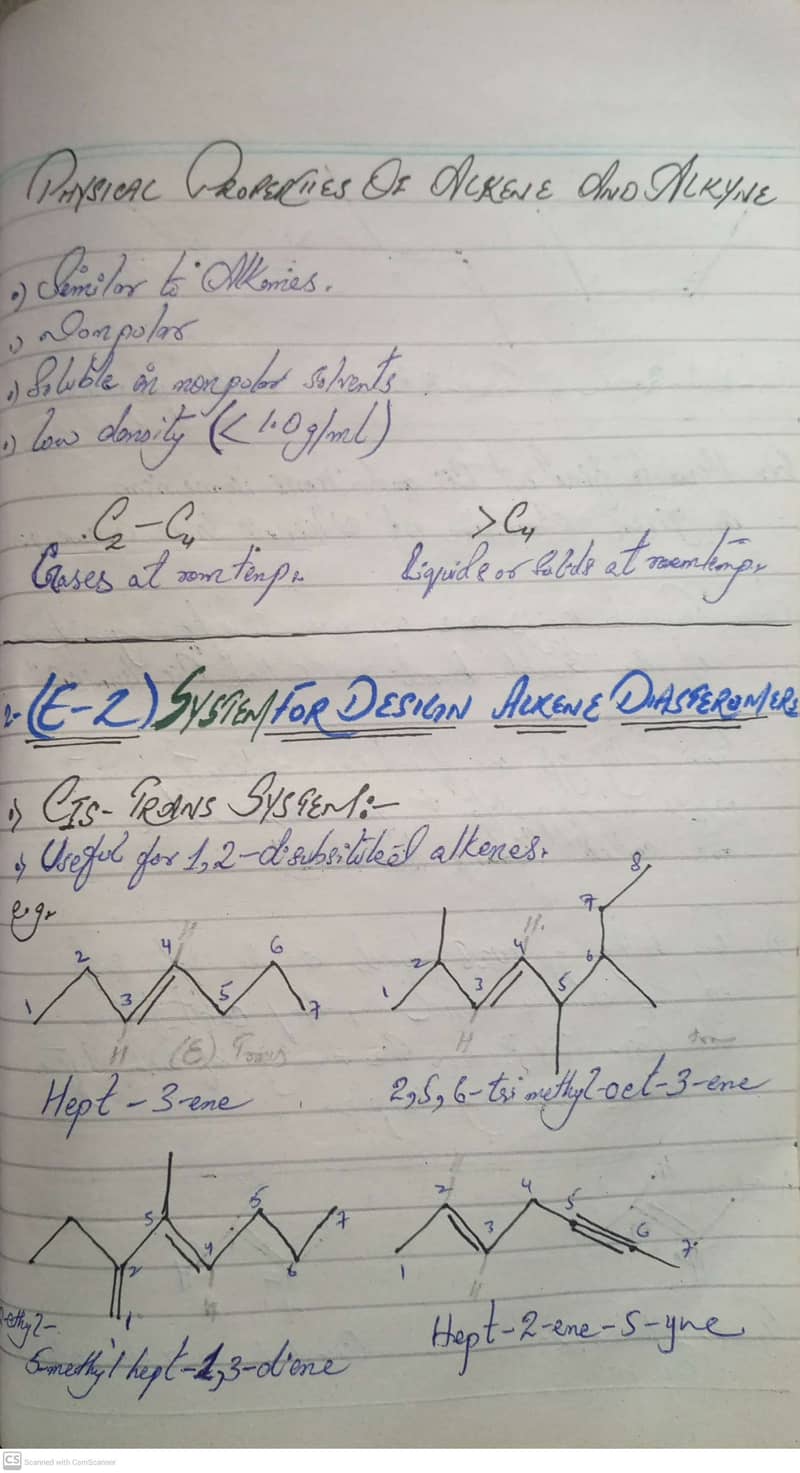 PHYSICAL PROPERTIES OF ALKENE AND ALKYNE
•) Similar to Alkanes.
•) Nonpolar
•) Soluble in nonpolar solvents
•) Low density (< 1.0 g/ml)
C2 – C4
> C4
Gases at room temp.
Liquids or Solids at room temp.
2- (E-Z) SYSTEM FOR DESIGN ALKENE DIASTEROMERS
•) CIS- TRANS SYSTEM:-
•) Useful for 1,2-disubsituted alkenes.
e.g.
1 2 3 4 5 6 7
H H
(E) Trans
1 2 3 4 5 6 7 8
H H
Hept-3-ene
2,5,6-tri methyl-oct-3-ene
1 2 3 4 5 6 7
H
1 2 3 4 5 6 7
H H
2-ethyl-
3-methyl hept-1,3-diene
Hept-2-ene-5-yne
CS Scanned with CamScanner